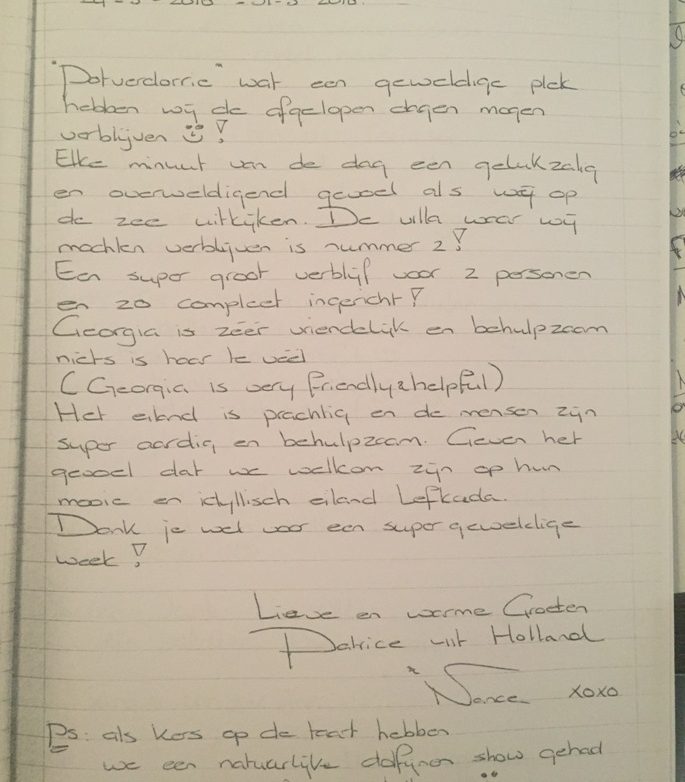 "Potverdorrie" wat een geweldige plek
hebben wij de afgelopen dagen mogen
verblijven !
Elke minuut van de dag een gelukzalig
en overweldigend gevoel als wij op
de zee uitkijken. De villa waar wij
mochten verblijven is nummer 2!
Een super groot verblijf voor 2 personen
en zo compleet ingericht!
Georgia is zéér vriendelijk en behulpzaam
niets is haar te veel
(Georgia is very friendly & helpful)
Het eiland is prachtig en de mensen zijn
super aardig en behulpzaam. Geven het
gevoel dat we welkom zijn op hun
mooie en idyllisch eiland Lefkada.
Dank je wel voor een super geweldige
week!
Lieve en warme Groeten
Patrice uit Holland
Nance xoxo
Ps: als kers op de taart hebben
we een natuurlijke dolfijnen show gehad